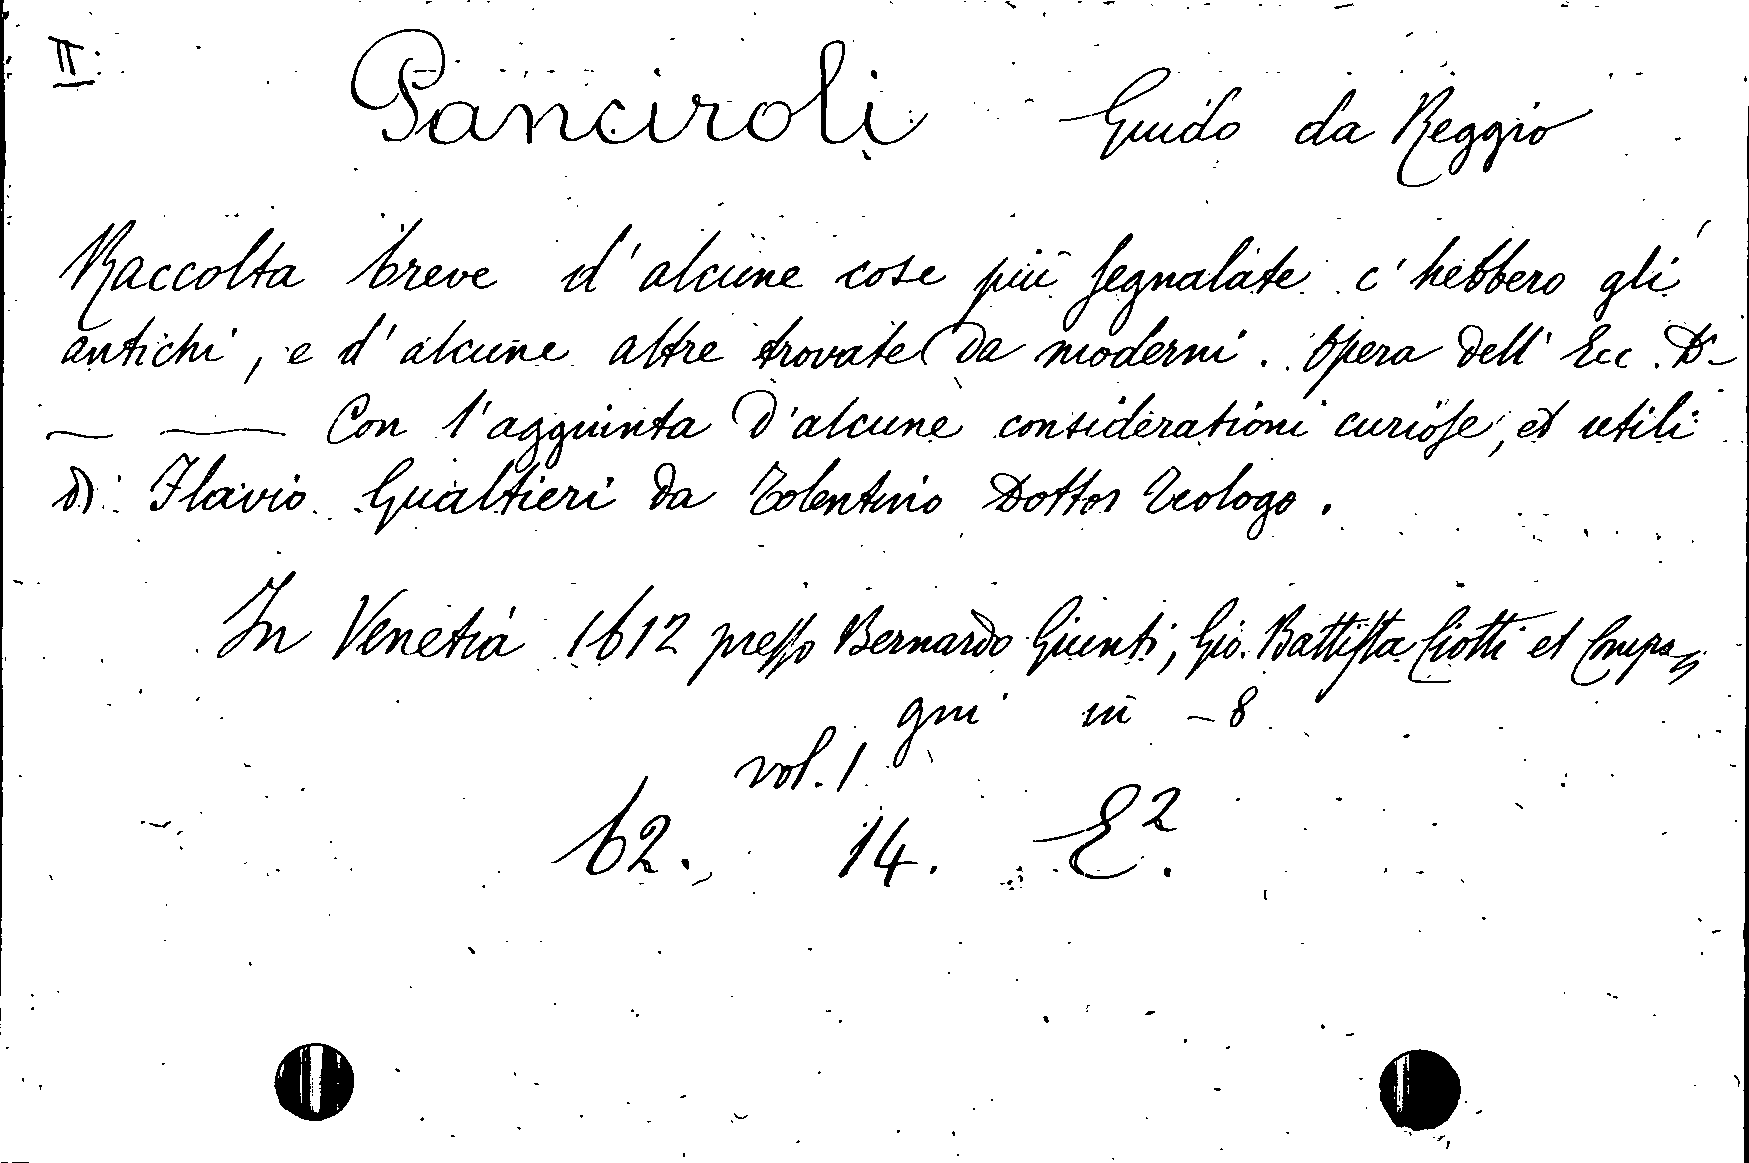 II.
Panciroli Guido da Reggio
Raccolta breve d'alcune cose più segnalate c'hebbero gli
antichi, e d'alcune altre trovate da moderni. Opera dell' Ecc. D-
— — Con l'aggiunta d'alcune considerationi curiose, et utili
di Flavio Gualtieri da Tolentino Dottor Teologo.
In Venetia 1612 presso Bernardo Giunti, Gio. Battista Ciotti et Compa=
gni in -8
vol. 1
62. 14. E².